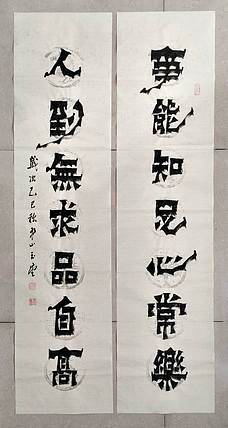 事能知足心常樂
人到無求品自高
歲次乙巳秋